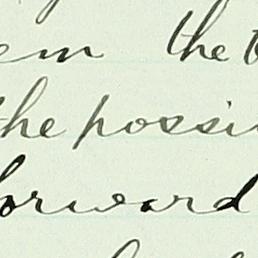 em the
the possi
forward